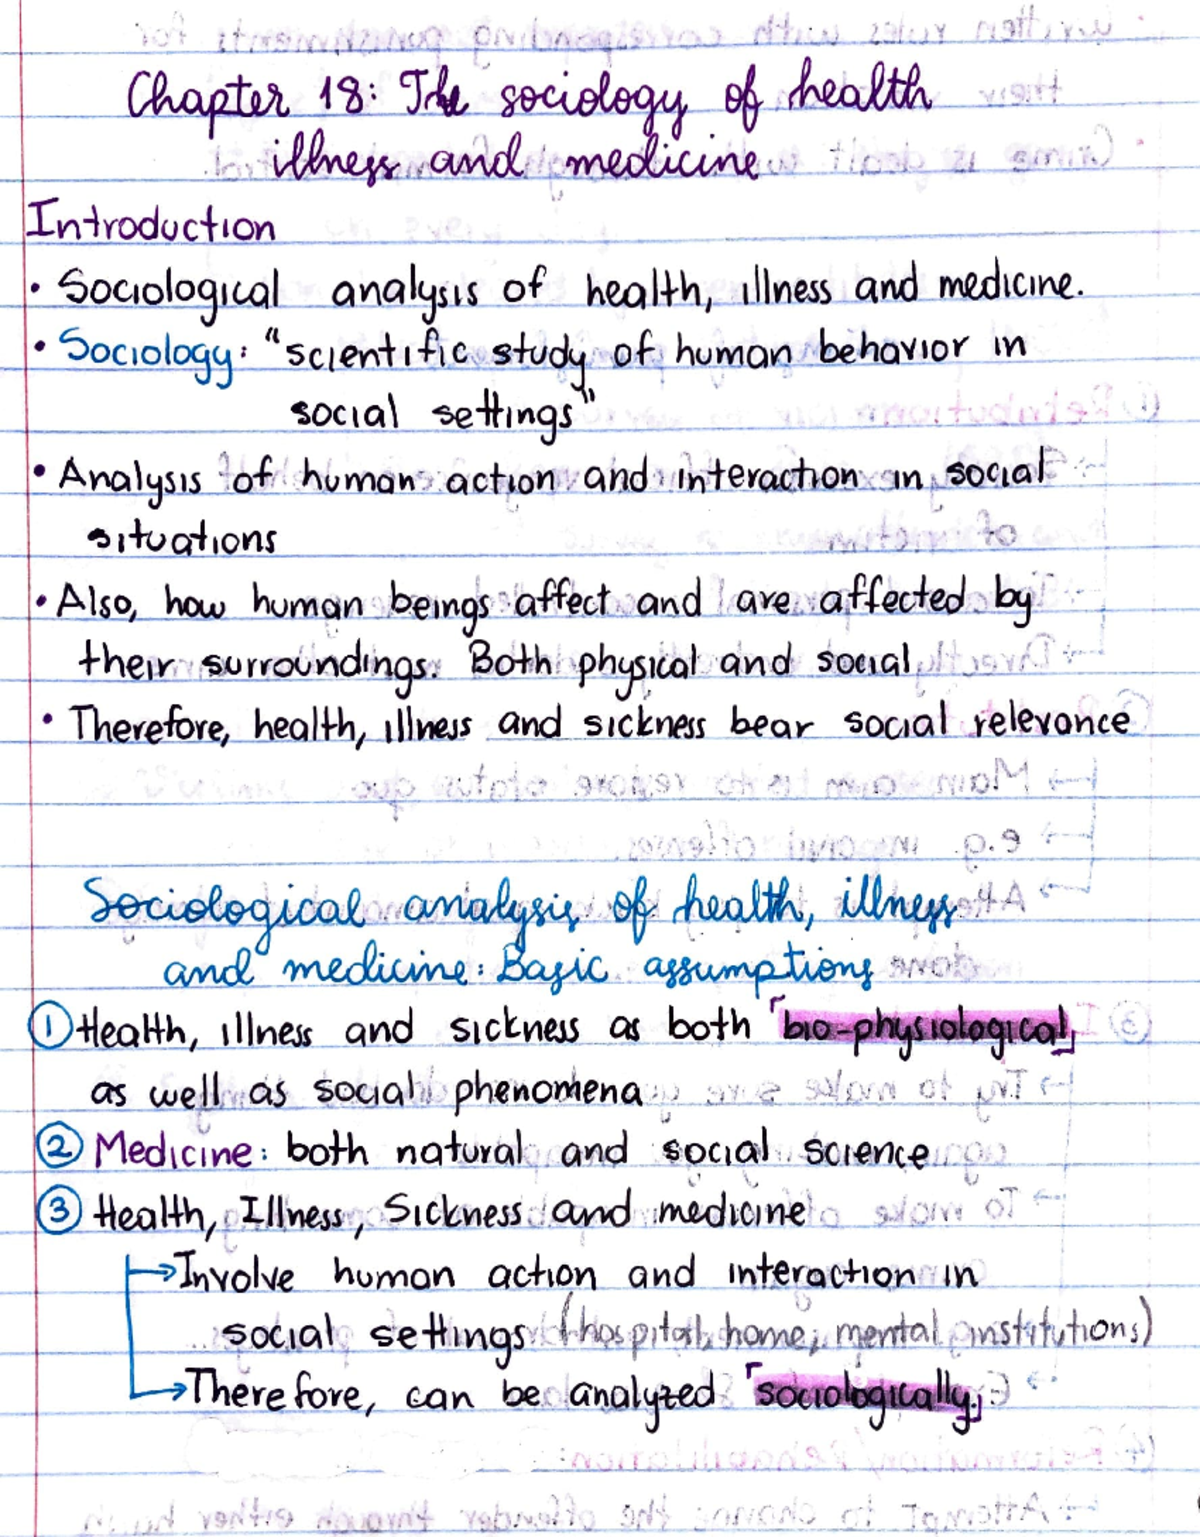 Chapter 18: The sociology of health
illness and medicine
Introduction
• Sociological analysis of health, illness and medicine.
• Sociology: "scientific study of human behavior in
social settings"
• Analysis of human action and interaction in social
situations
• Also, how human beings affect and are affected by
their surroundings. Both physical and social
• Therefore, health, illness and sickness bear social relevance
Sociological analysis of health, illness
and medicine: Basic assumptions
① Health, illness and sickness as both "bio-physiological"
as well as social phenomena
② Medicine: both natural and social science
③ Health, Illness, Sickness and medicine
→ Involve human action and interaction in
social settings (hospital, home, mental institutions)
→ Therefore, can be analyzed "sociologically"